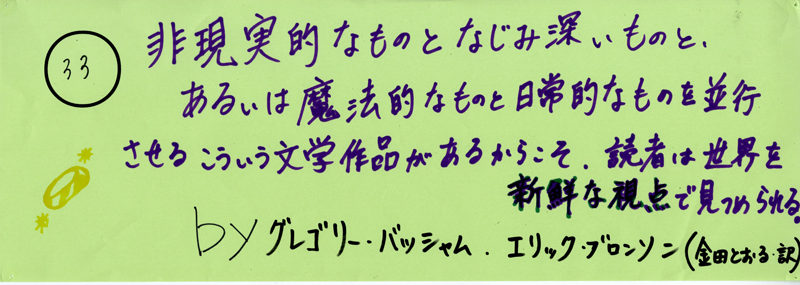 33
非現実的なものとなじみ深いものと、
あるいは魔法的なものと日常的なものを並行
させるこういう文学作品があるからこそ、読者は世界を
新鮮な視点で見つめられる。
by グレゴリー・バッシャム、エリック・ブロンソン(金田とおる・訳)